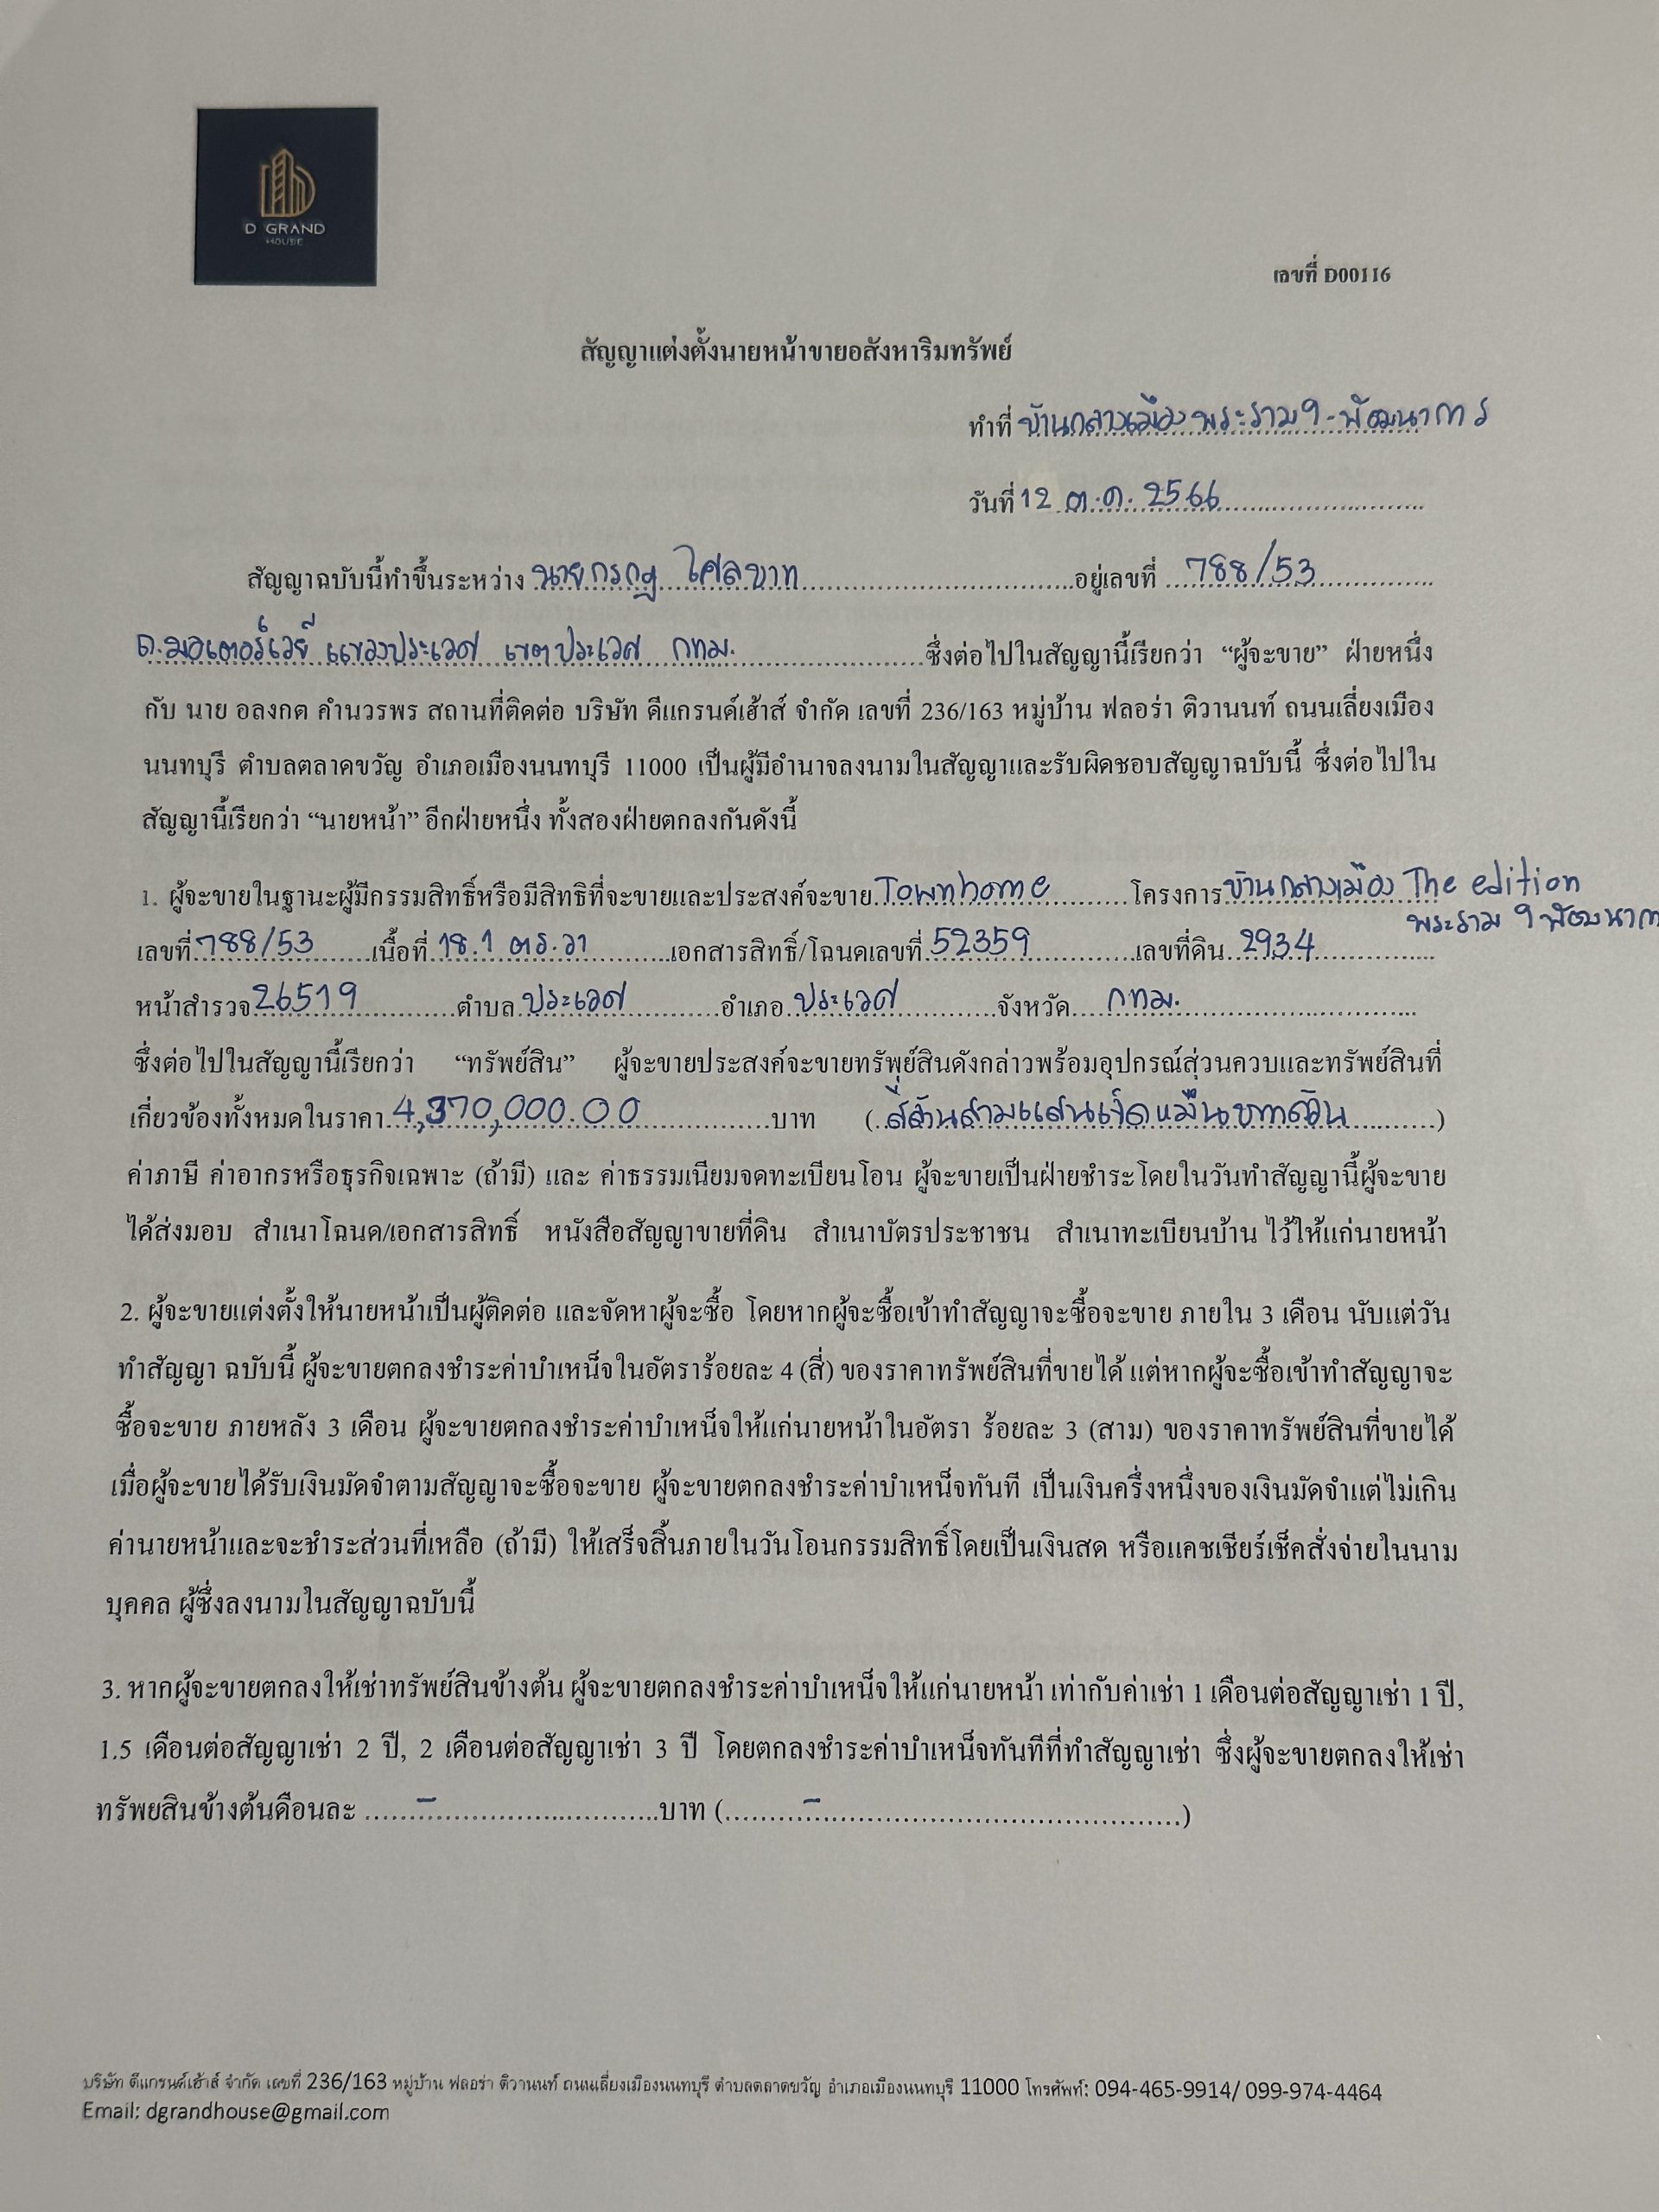 D GRAND
HOUSE
เลขที่ D00116
สัญญาแต่งตั้งนายหน้าขายอสังหาริมทรัพย์
ทำที่ บ้านกลางเมือง พระราม 9 - พัฒนาการ
วันที่ 12 ต.ค. 2566
สัญญาฉบับนี้ทำขึ้นระหว่าง นายกรกฎ ไศลบาท อยู่เลขที่ 788/53
ถ.มอเตอร์เวย์ แขวงประเวศ เขตประเวศ กทม. ซึ่งต่อไปในสัญญานี้เรียกว่า “ผู้จะขาย” ฝ่ายหนึ่ง
กับ นาย อลงกต คำนวรพร สถานที่ติดต่อ บริษัท ดีแกรนด์เฮ้าส์ จำกัด เลขที่ 236/163 หมู่บ้าน ฟลอร่า ติวานนท์ ถนนเลี่ยงเมือง
นนทบุรี ตำบลตลาดขวัญ อำเภอเมืองนนทบุรี 11000 เป็นผู้มีอำนาจลงนามในสัญญาและรับผิดชอบสัญญาฉบับนี้ ซึ่งต่อไปใน
สัญญานี้เรียกว่า “นายหน้า” อีกฝ่ายหนึ่ง ทั้งสองฝ่ายตกลงกันดังนี้
1. ผู้จะขายในฐานะผู้มีกรรมสิทธิ์หรือมีสิทธิที่จะขายและประสงค์จะขาย Townhome โครงการ บ้านกลางเมือง The edition
พระราม 9 พัฒนาการ
เลขที่ 788/53 เนื้อที่ 18.1 ตร.วา เอกสารสิทธิ์/โฉนดเลขที่ 52359 เลขที่ดิน 2934
หน้าสำรวจ 26519 ตำบล ประเวศ อำเภอ ประเวศ จังหวัด กทม.
ซึ่งต่อไปในสัญญานี้เรียกว่า “ทรัพย์สิน” ผู้จะขายประสงค์จะขายทรัพย์สินดังกล่าวพร้อมอุปกรณ์ส่วนควบและทรัพย์สินที่
เกี่ยวข้องทั้งหมดในราคา 4,370,000.00 บาท (สี่ล้านสามแสนเจ็ดหมื่นบาทถ้วน)
ค่าภาษี ค่าอากรหรือธุรกิจเฉพาะ (ถ้ามี) และ ค่าธรรมเนียมจดทะเบียนโอน ผู้จะขายเป็นฝ่ายชำระโดยในวันทำสัญญานี้ผู้จะขาย
ได้ส่งมอบ สำเนาโฉนด/เอกสารสิทธิ์ หนังสือสัญญาขายที่ดิน สำเนาบัตรประชาชน สำเนาทะเบียนบ้าน ไว้ให้แก่นายหน้า
2. ผู้จะขายแต่งตั้งให้นายหน้าเป็นผู้ติดต่อ และจัดหาผู้จะซื้อ โดยหากผู้จะซื้อเข้าทำสัญญาจะซื้อจะขาย ภายใน 3 เดือน นับแต่วัน
ทำสัญญา ฉบับนี้ ผู้จะขายตกลงชำระค่าบำเหน็จในอัตราร้อยละ 4 (สี่) ของราคาทรัพย์สินที่ขายได้ แต่หากผู้จะซื้อเข้าทำสัญญาจะ
ซื้อจะขาย ภายหลัง 3 เดือน ผู้จะขายตกลงชำระค่าบำเหน็จให้แก่นายหน้าในอัตรา ร้อยละ 3 (สาม) ของราคาทรัพย์สินที่ขายได้
เมื่อผู้จะขายได้รับเงินมัดจำตามสัญญาจะซื้อจะขาย ผู้จะขายตกลงชำระค่าบำเหน็จทันที เป็นเงินครึ่งหนึ่งของเงินมัดจำแต่ไม่เกิน
ค่านายหน้าและจะชำระส่วนที่เหลือ (ถ้ามี) ให้เสร็จสิ้นภายในวันโอนกรรมสิทธิ์โดยเป็นเงินสด หรือแคชเชียร์เช็คสั่งจ่ายในนาม
บุคคล ผู้ซึ่งลงนามในสัญญาฉบับนี้
3. หากผู้จะขายตกลงให้เช่าทรัพย์สินข้างต้น ผู้จะขายตกลงชำระค่าบำเหน็จให้แก่นายหน้า เท่ากับค่าเช่า 1 เดือนต่อสัญญาเช่า 1 ปี,
1.5 เดือนต่อสัญญาเช่า 2 ปี, 2 เดือนต่อสัญญาเช่า 3 ปี โดยตกลงชำระค่าบำเหน็จทันทีที่ทำสัญญาเช่า ซึ่งผู้จะขายตกลงให้เช่า
ทรัพยสินข้างต้นดือนละ ......-......บาท (......-......)
บริษัท ดีแกรนด์เฮ้าส์ จำกัด เลขที่ 236/163 หมู่บ้าน ฟลอร่า ติวานนท์ ถนนเลี่ยงเมืองนนทบุรี ตำบลตลาดขวัญ อำเภอเมืองนนทบุรี 11000 โทรศัพท์: 094-465-9914/ 099-974-4464
Email: dgrandhouse@gmail.com